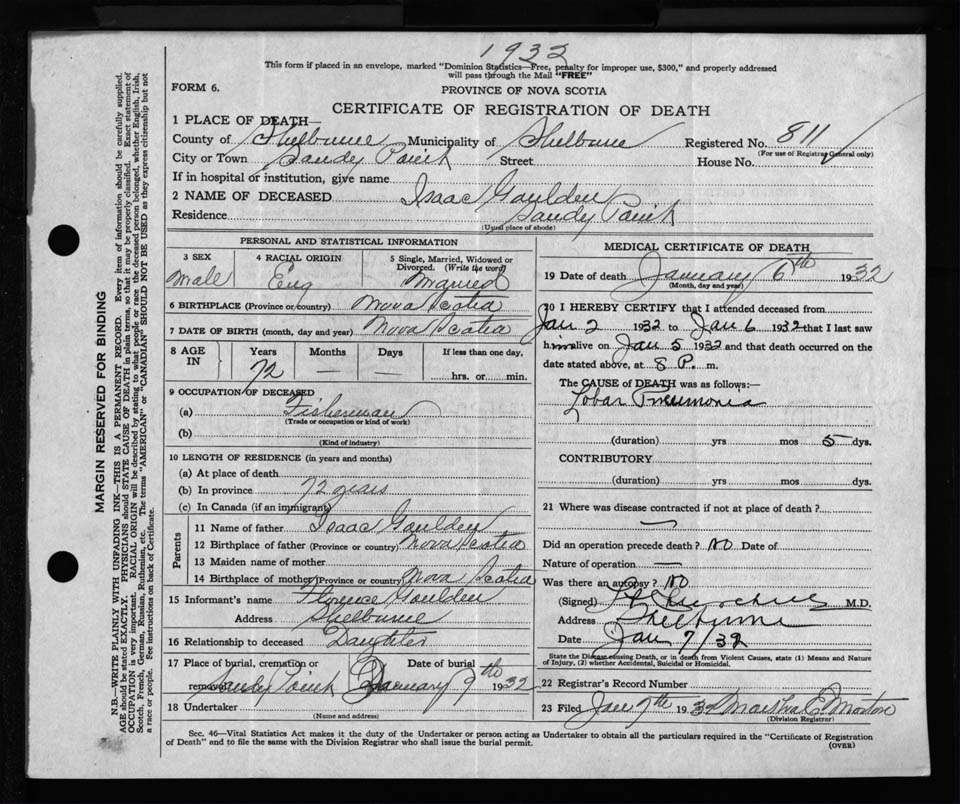 1932
This form if placed in an envelope, marked "Dominion Statistics—Free, penalty for improper use, $300," and properly addressed
will pass through the Mail "FREE"
FORM 6.
PROVINCE OF NOVA SCOTIA
CERTIFICATE OF REGISTRATION OF DEATH
1 PLACE OF DEATH—
County of Shelburne Municipality of Shelburne Registered No. 811
(For use of Registrar General only)
City or Town Sandy Point Street House No.
If in hospital or institution, give name
2 NAME OF DECEASED Isaac Goulden
Residence Sandy Point
(Usual place of abode)
PERSONAL AND STATISTICAL INFORMATION
3 SEX Male
4 RACIAL ORIGIN Eng
5 Single, Married, Widowed or Divorced. (Write the word) Married
6 BIRTHPLACE (Province or country) Nova Scotia
7 DATE OF BIRTH (month, day and year) Nova Scotia
8 AGE IN Years 72 Months — Days — If less than one day, hrs. or min.
9 OCCUPATION OF DECEASED
(a) Fisherman
(Trade or occupation or kind of work)
(b)
(Kind of industry)
10 LENGTH OF RESIDENCE (in years and months)
(a) At place of death
(b) In province 72 years
(c) In Canada (if an immigrant)
Parents
11 Name of father Isaac Goulden
12 Birthplace of father (Province or country) Nova Scotia
13 Maiden name of mother
14 Birthplace of mother (Province or country) Nova Scotia
15 Informant's name Florence Goulden
Address Shelburne
16 Relationship to deceased Daughter
17 Place of burial, cremation or removal Sandy Point
Date of burial January 9th 1932
18 Undertaker
(Name and address)
MEDICAL CERTIFICATE OF DEATH
19 Date of death January 6th 1932
(Month, day and year)
20 I HEREBY CERTIFY that I attended deceased from
Jan 2 1932 to Jan 6 1932 that I last saw
him alive on Jan 5 1932 and that death occurred on the
date stated above, at 8 P. m.
The CAUSE of DEATH was as follows:—
Lobar Pneumonia
(duration) yrs mos 5 dys.
CONTRIBUTORY
(duration) yrs mos dys.
21 Where was disease contracted if not at place of death?
—
Did an operation precede death? No Date of
Nature of operation —
Was there an autopsy? No
(Signed) M.D.
Address Shelburne
Date Jan 7/32
State the Disease causing Death, or in death from Violent Causes, state (1) Means and Nature
of Injury, (2) whether Accidental, Suicidal or Homicidal.
22 Registrar's Record Number
23 Filed Jan 7th 1932 Martha E. Morton
(Division Registrar)
Sec. 46—Vital Statistics Act makes it the duty of the Undertaker or person acting as Undertaker to obtain all the particulars required in the "Certificate of Registration
of Death" and to file the same with the Division Registrar who shall issue the burial permit.
(OVER)
MARGIN RESERVED FOR BINDING
N.B.—WRITE PLAINLY WITH UNFADING INK—THIS IS A PERMANENT RECORD. Every item of information should be carefully supplied.
AGE should be stated EXACTLY. PHYSICIANS should STATE CAUSE OF DEATH in plain terms, so that it may be properly classified. Exact statement of
OCCUPATION is very important. RACIAL ORIGIN will be described by stating to what people or race the deceased person belonged, whether English, Irish,
Scotch, French, German, Russian, Ruthenian, etc. The terms "AMERICAN" or "CANADIAN" SHOULD NOT BE USED as they express citizenship but not
a race or people. See instructions on back of Certificate.